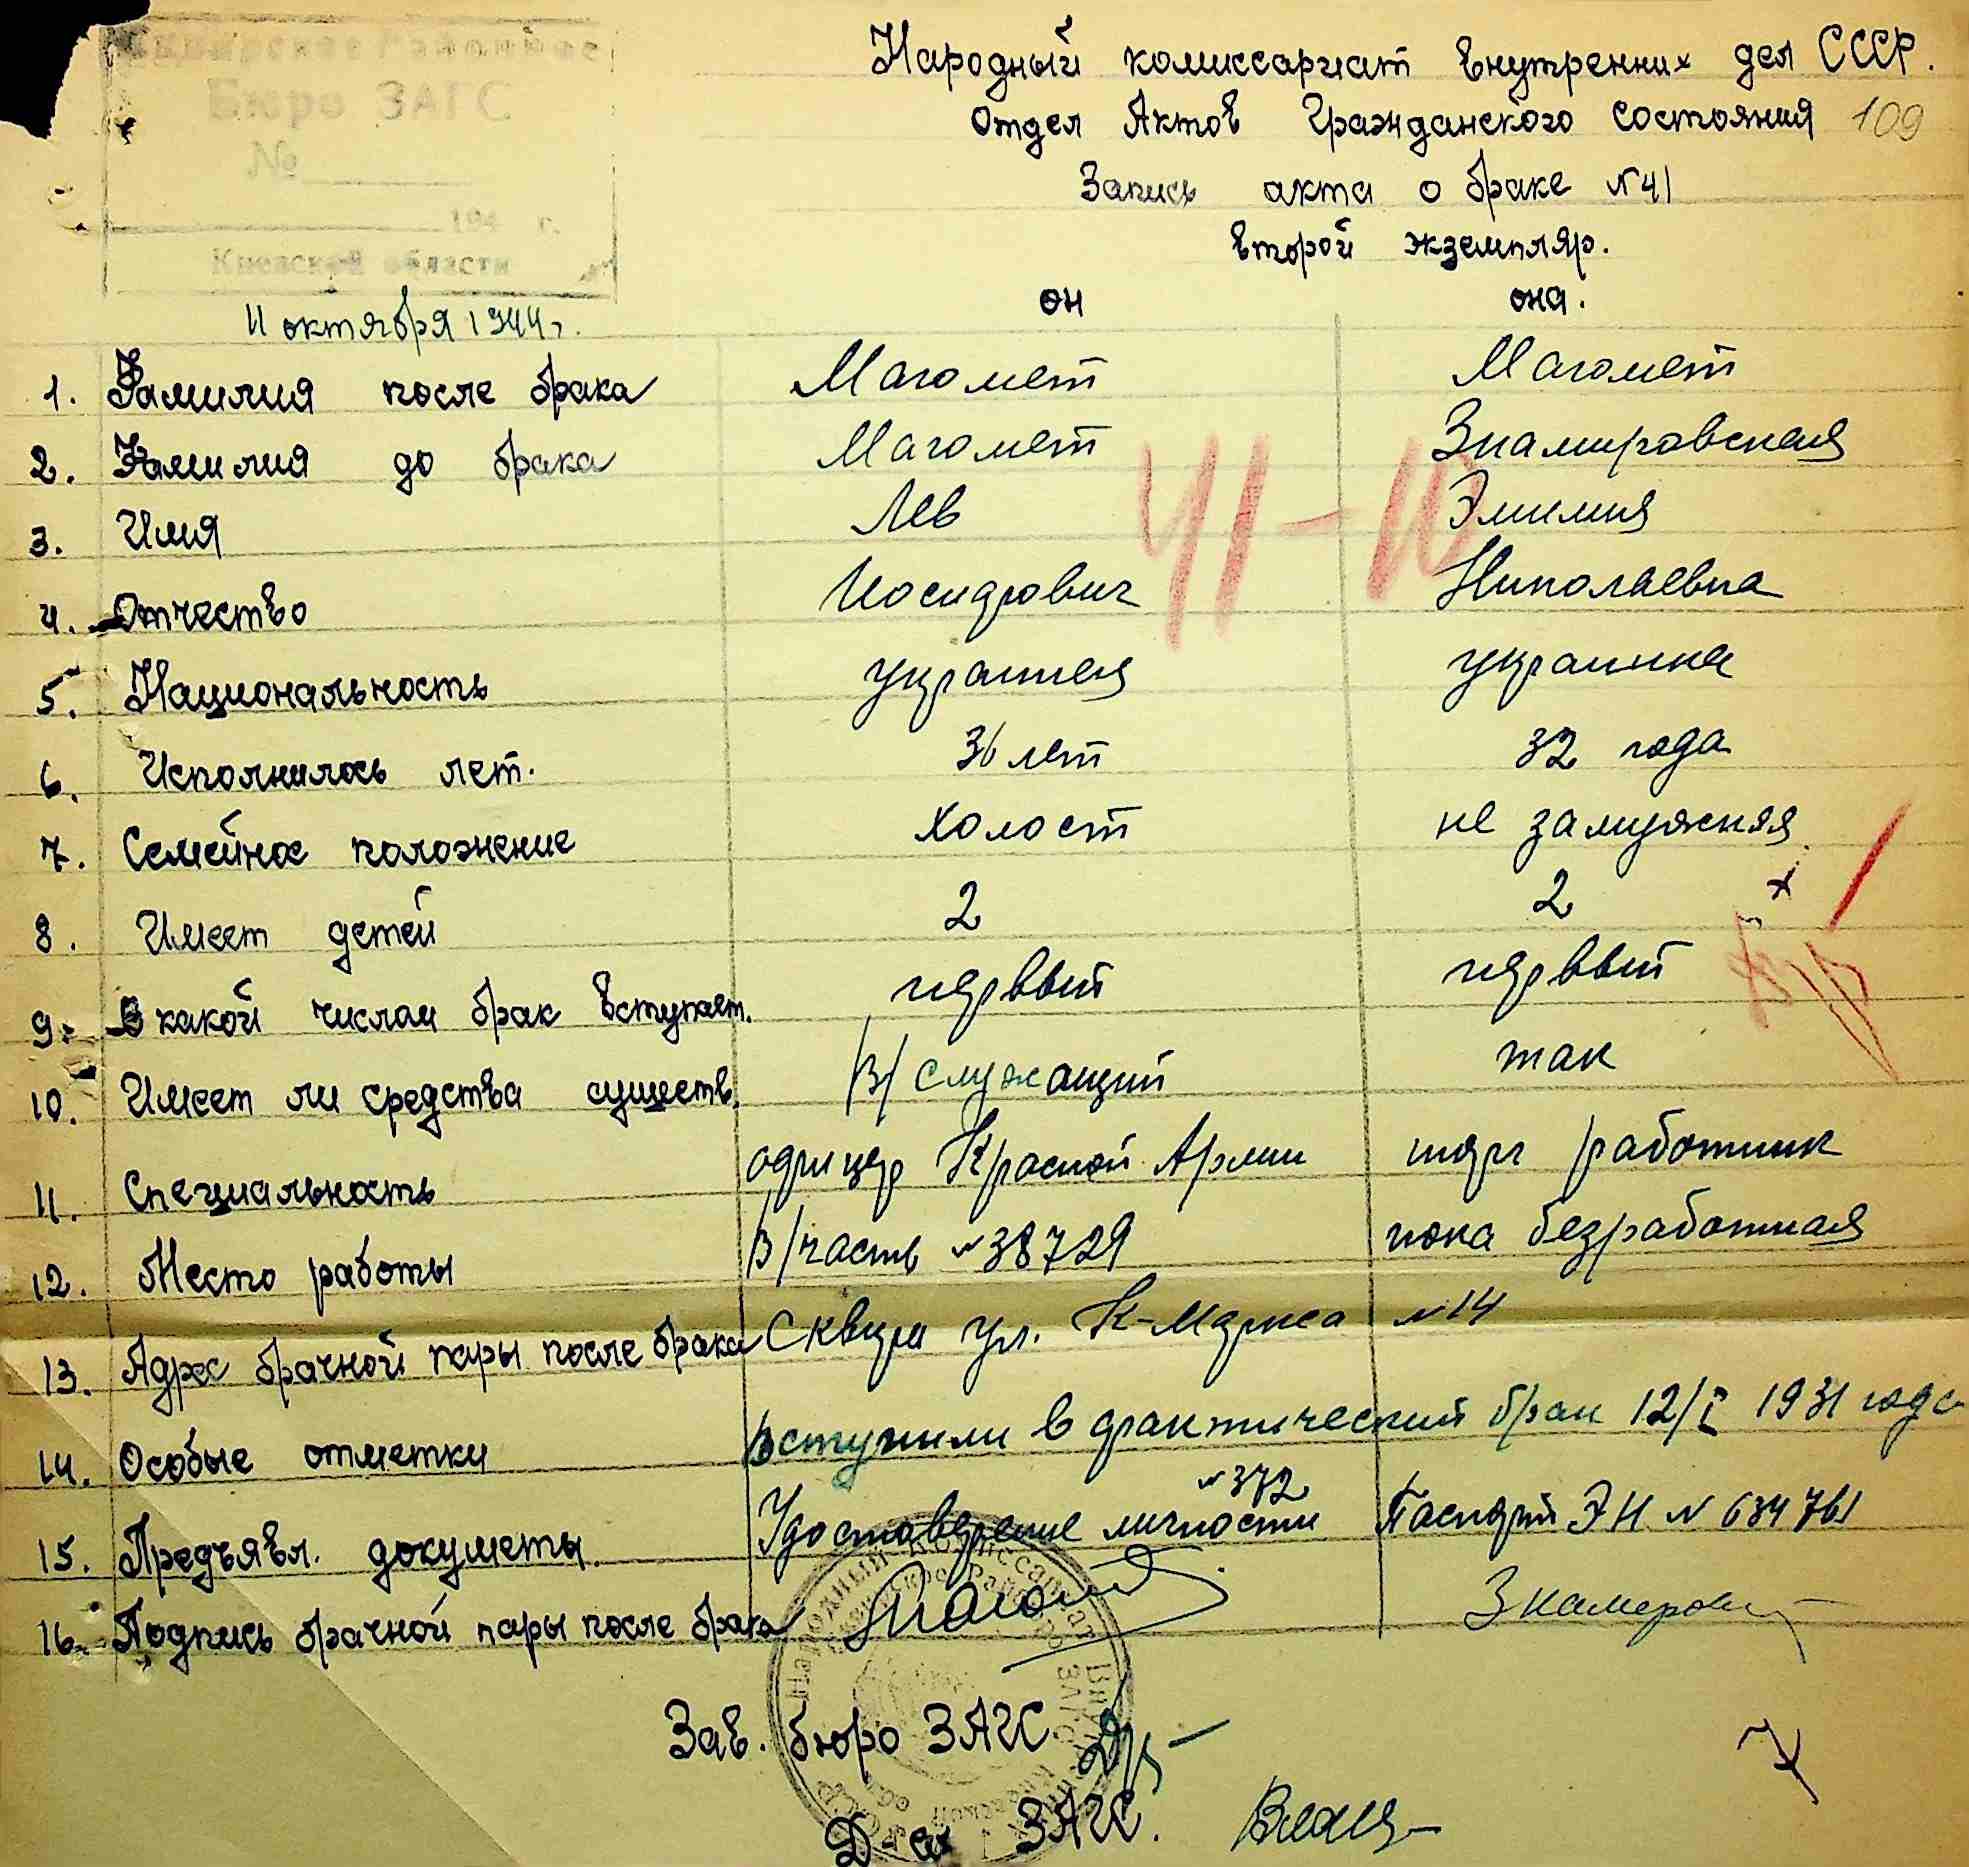 Сквирское Районное
Бюро ЗАГС
№
194 г.
Киевской области
Народный комиссариат внутренних дел СССР.
Отдел Актов Гражданского состояния 109
Запись акта о браке №41
второй экземпляр.
11 октября 1944 г.
он она.
1. Фамилия после брака Магомет Магомет
2. Фамилия до брака Магомет Знамировская
3. Имя Лев Эмилия
4. Отчество Иосифович Николаевна
41-10
5. Национальность украинец украинка
6. Исполнилось лет. 36 лет 32 года
7. Семейное положение холост не замужняя
8. Имеет детей 2 2
9. В какой числом брак вступает. первый первый
10. Имеет ли средства существ. в/служащий так
11. Специальность офицер Красной Армии парт работник
12. Место работы в/часть №38729 пока безработная
13. Адрес брачной пары после брака Сквира ул. К-Маркса №14
14. Особые отметки вступили в фактический брак 12/I 1931 года
15. Предъявл. документы. Удостоверение личности №372 Паспорт ЭН № 634761
16. Подпись брачной пары после брака
Зав. бюро ЗАГС
Д-ль ЗАГС.